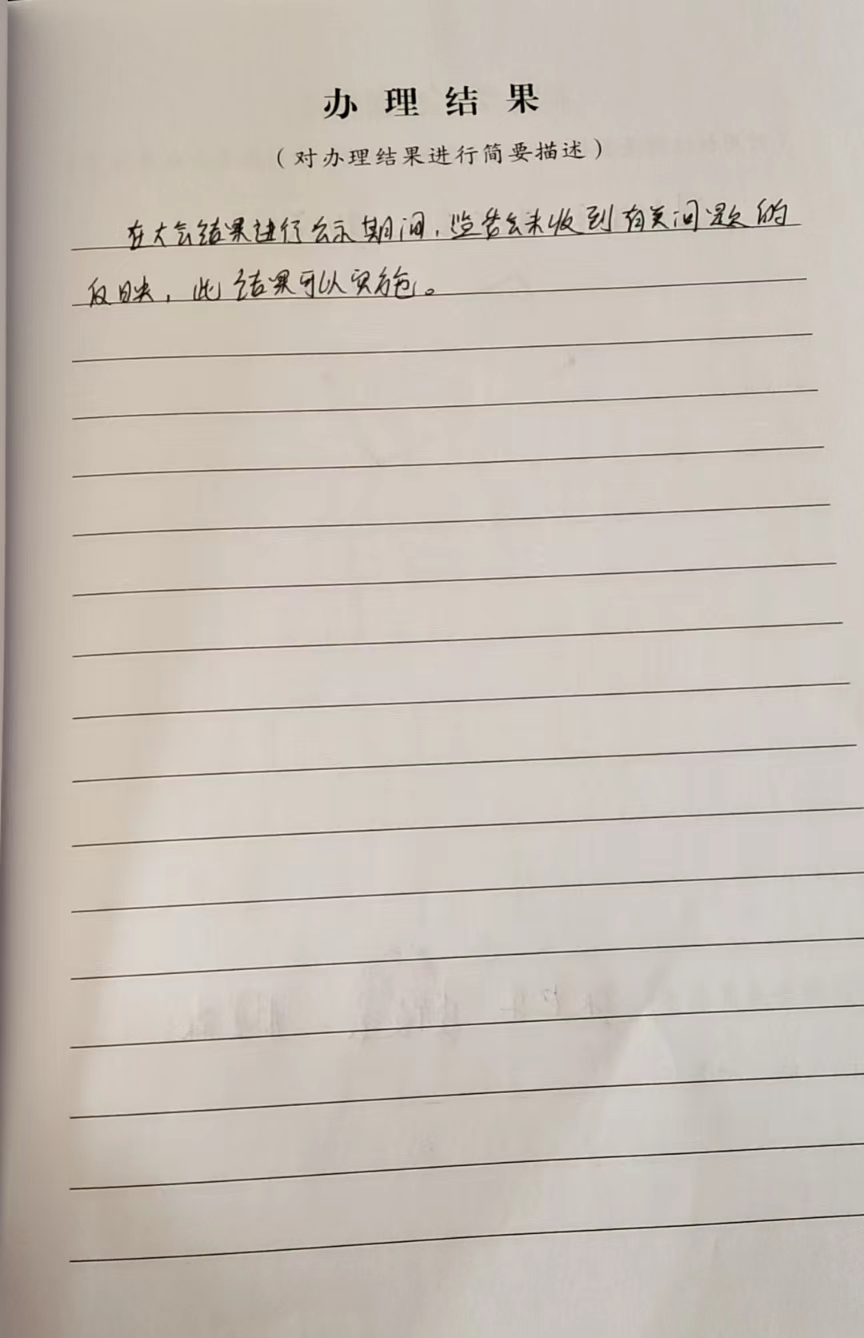 办理结果
（对办理结果进行简要描述）
在大会结果进行公示期间，监委会未收到有关问题的
反映，此结果可以实施。